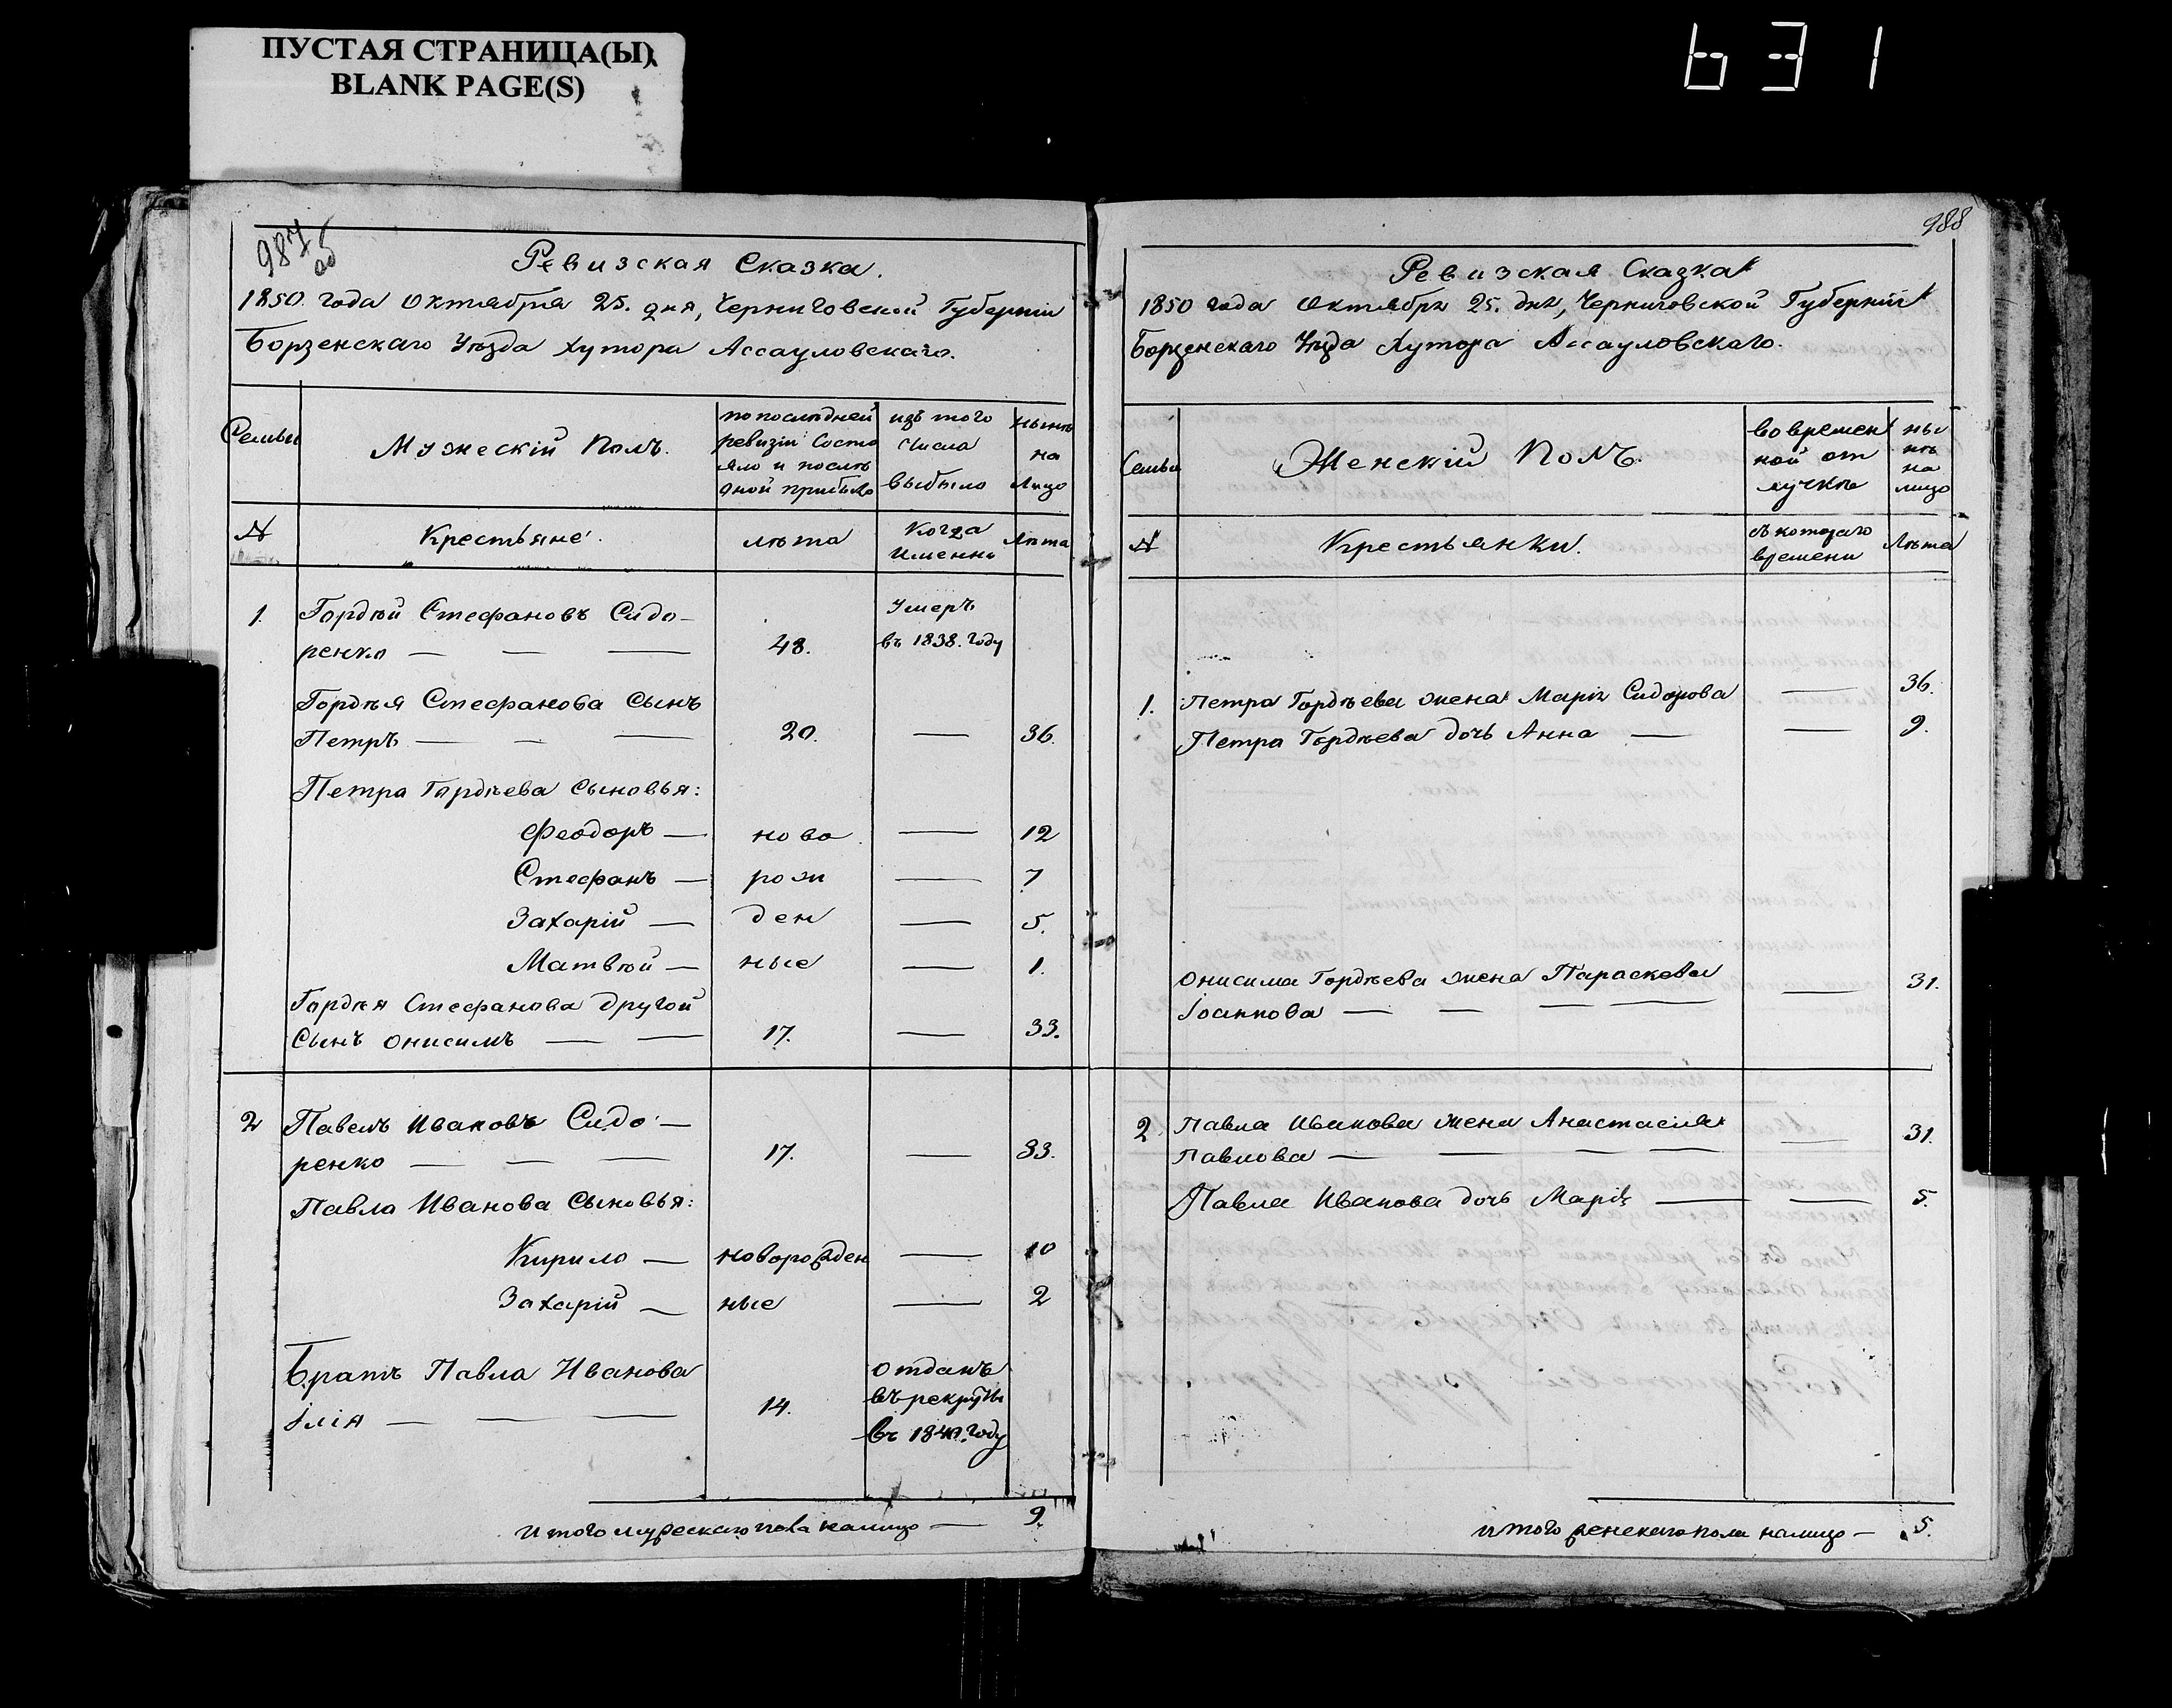 ПУСТАЯ СТРАНИЦА(Ы)
BLANK PAGE(S)
631
987
об
Ревизская Сказка.
1850. года Октября 25. дня, Черниговской Губернiи
Борзенскаго Уѣзда Хутора Ассауловскаго.
Семьи
Мужескiй Полъ.
по послѣдней
ревизiи Состо
яло и послѣ
оной прибыло
изъ того
Числа
выбыло
нынѣ
на
Лицо
№
Крестьяне.
лѣта
Когда
Именно
Лѣта
1. Гордѣй Стефановъ Сидо-
ренко — — — 48. Умеръ въ 1838. году
Гордѣя Стефанова Сынъ
Петръ — — — 20. — 36.
Петра Гордѣева Сыновья:
Феодоръ — ново — 12
Стефанъ — рож — 7
Захарiй — ден — 5.
Матвѣй — ные — 1.
Гордѣя Стефанова другой
Сынъ Онисимъ — — 17. — 33.
2 Павелъ Ивановъ Сидо-
ренко — — — 17. — 33.
Павла Иванова Сыновья:
Кирило — новорожден — 10
Захарiй — ные — 2
Братъ Павла Иванова
Iлiя — — — 14. отданъ
въ рекруты
въ 1840. году
Итого мужескаго пола налицо — 9.
988
Ревизская Сказка
1850 года Октября 25. дня, Черниговской Губернiи
Борзенскаго Уѣзда Хутора Ассауловскаго.
Семьи
Женскiй Полъ.
во времен
ной от
лучкѣ
ны
нѣ
на
лицо
№
Крестьянки.
съ котораго
времени
Лѣта
1. Петра Гордѣева жена Марiя Сидорова — 36.
Петра Гордѣева дочь Анна — — 9.
Онисима Гордѣева жена Параскева — 31.
Iоаннова — — — —
2 Павла Иванова жена Анастасiя — 31.
Павлова — — — —
Павла Иванова дочь Марiя — — 5.
итого женскаго пола налицо — 5.